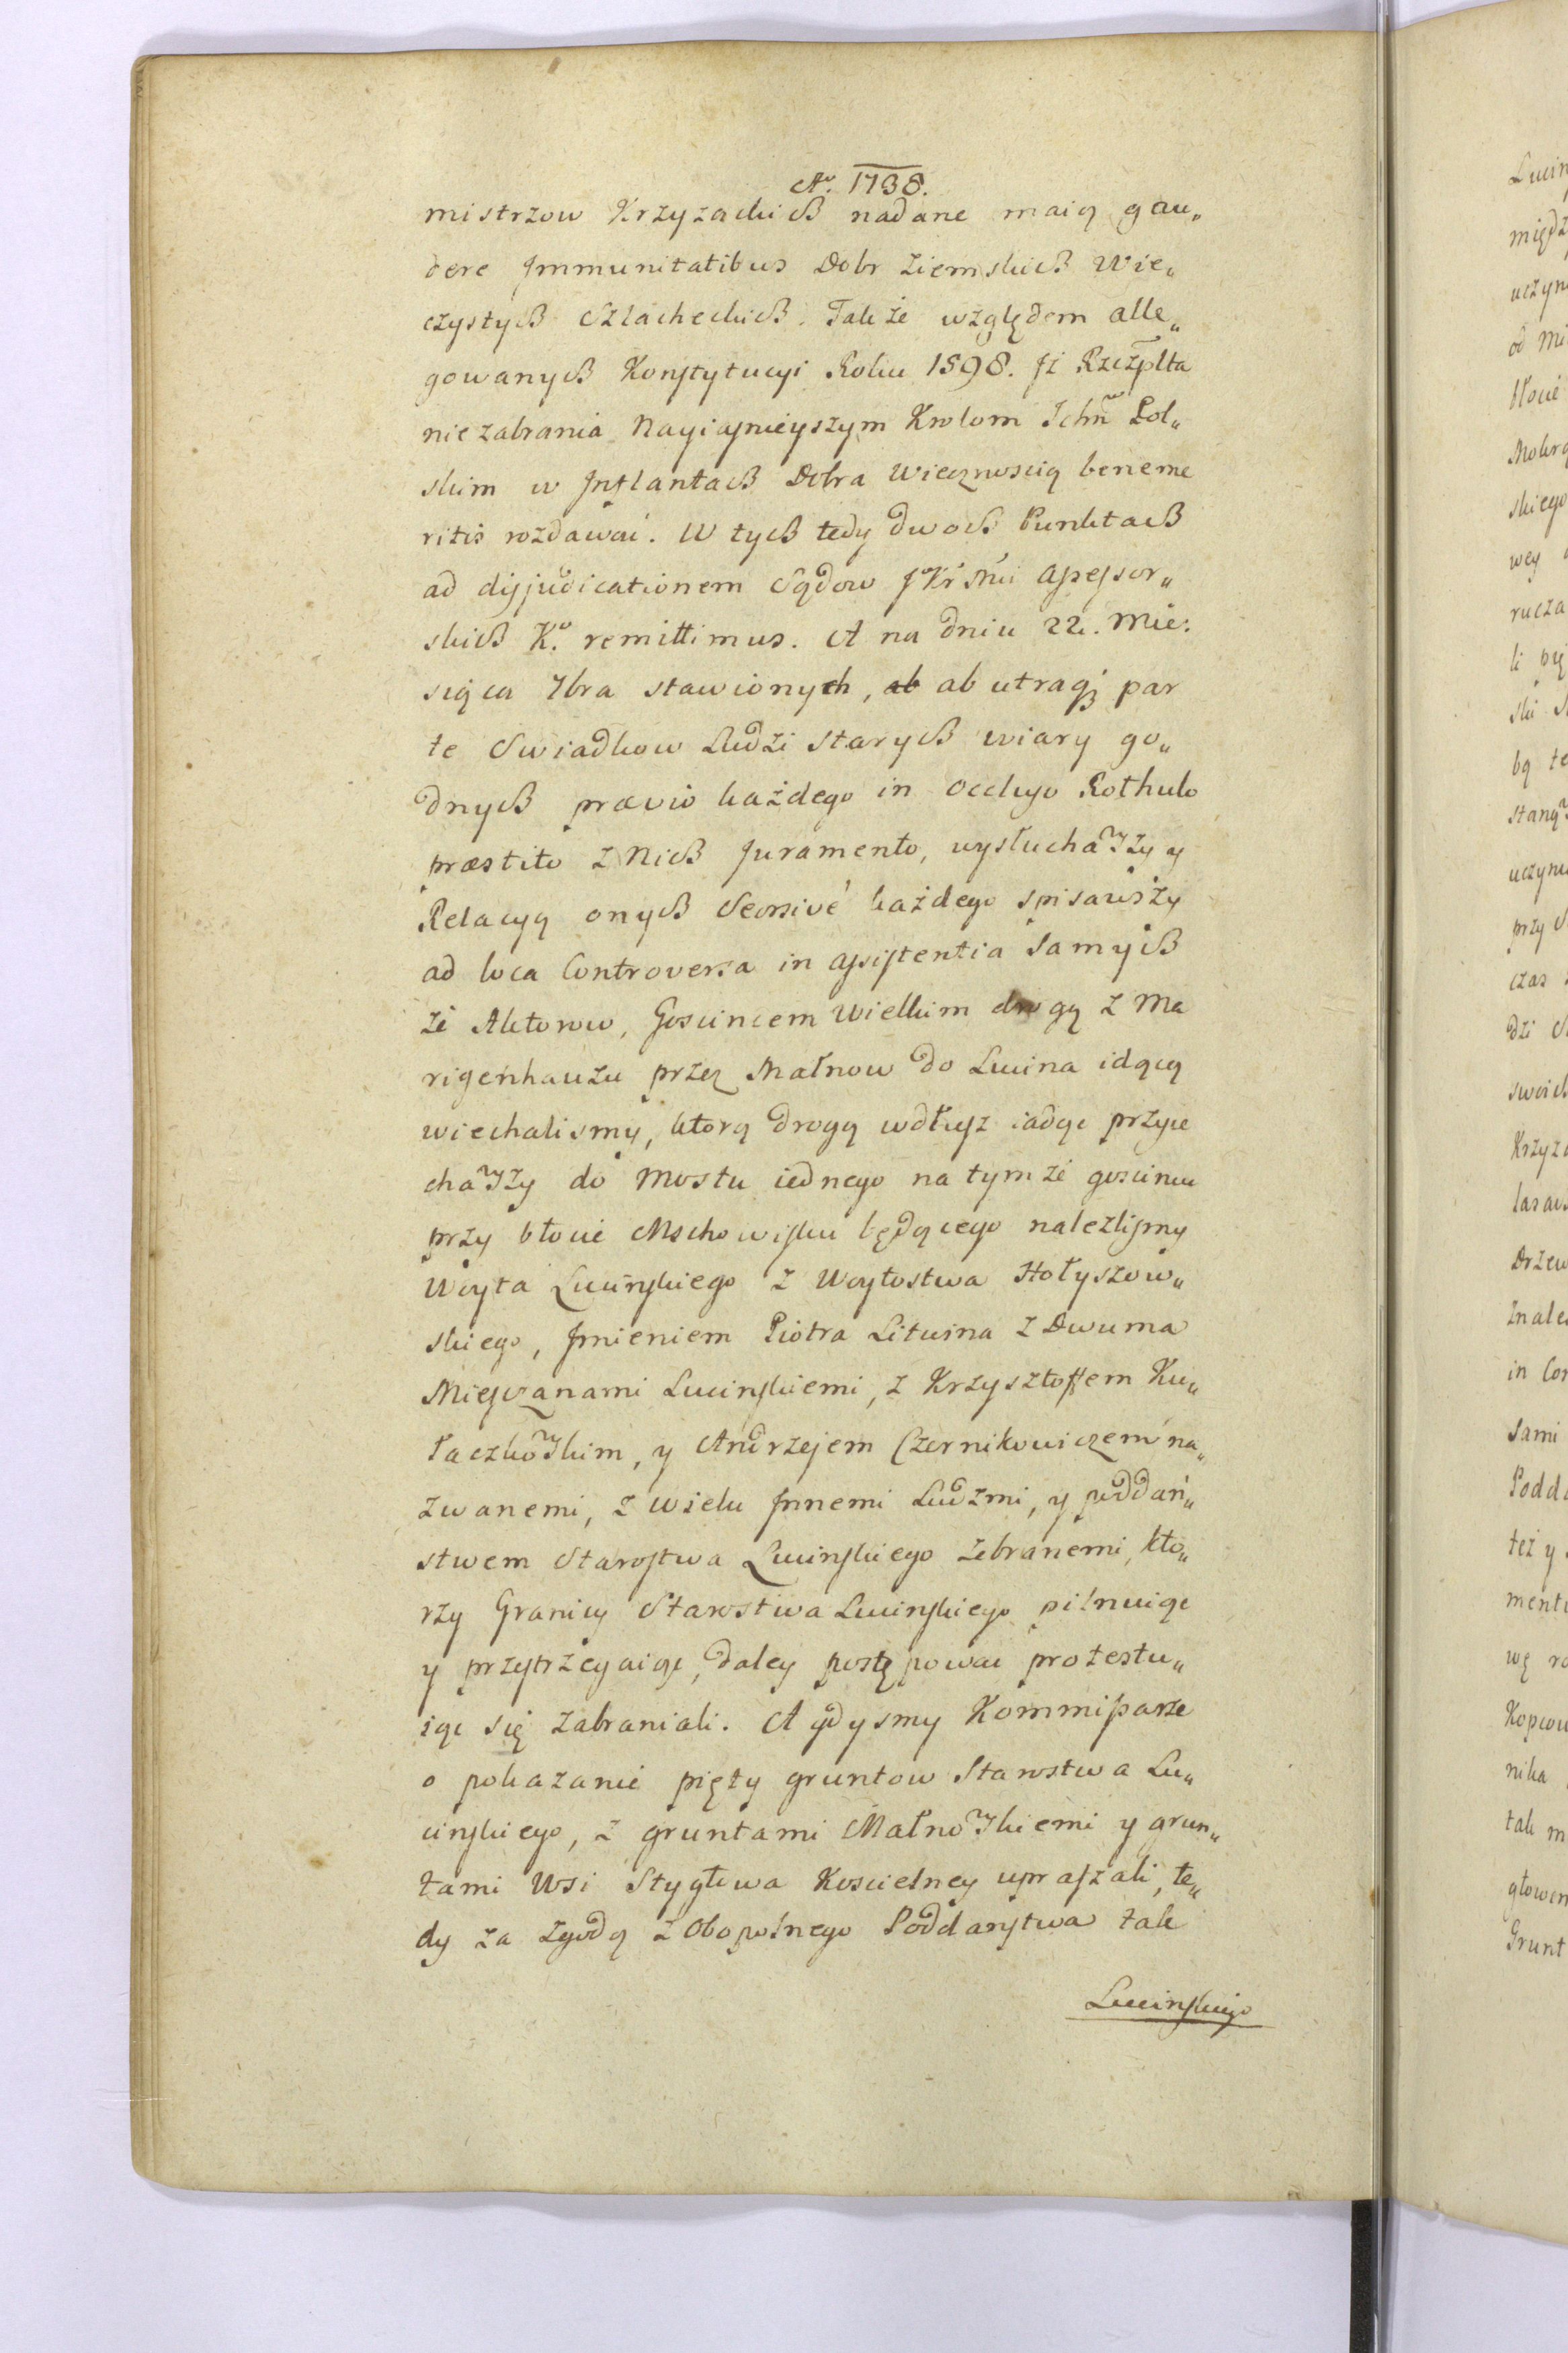 Aº. 1738.
mistrzow Krzyzackich nadane maią gau„
dere Immunitatibus Dobr Ziemskich Wie„
czystych Szlacheckich. Takze względem alle„
gowanych Konstytucyi Roku 1598. Iż Rzczplta
nie zabrania Nayiasnieyszym Krolom Ichm Pol„
skim w Inflantach Dobra wiecznoscią beneme
ritis rozdawać. W tych tedy dwoch Punktach
ad disjudicationem Sądow JKr Mci Assessor„
skich Kº. remittimus. A na dniu 22. Mie:
siąca 7bra stawionych, ab ab utraq; par
te Swiadkow Ludzi starych wiary go„
dnych prævio każdego in occluso Rothulo
præstito z Nich Juramento, wysłuchawszy y
Relacyą onych Seorsive każdego spisawszy
ad loca Controversa in assistentia samych
że Aktorow, Goscincem Wielkim drogą z Ma
rigenhauzu przez Małnow do Lucina idącą
wiechalismy, ktorą drogą wdłusz iadąc przyie
chawszy do Mostu iednego na tymże goscincu
przy błocie Mschowisku będącego nalezlismy
Woyta Lucinskiego z Woytostwa Hołyszow„
skiego, Imieniem Piotra Litwina z Dwuma
Miesczanami Lucinskiemi, z Krzysztoffem Ku„
łaczkowskim, y Andrzejem Czernikowiczem na„
zwanemi, z wielu Innemi Ludzmi, y poddań„
stwem Starostwa Lucinskiego zebranemi, kto„
rzy Granicy Starostwa Lucinskiego pilnuiąc
y przestrzegaiąc, daley postępować protestu„
iąc się zabraniali. A gdysmy Kommissarze
o pokazanie pięty gruntow Starostwa Lu„
cinskiego, z gruntami Małnowskiemi y grun„
tami Wsi Stygłowa Koscielney upraszali, te„
dy za zgodą z Obopolnego Poddanstwa tak
Lucinskiego